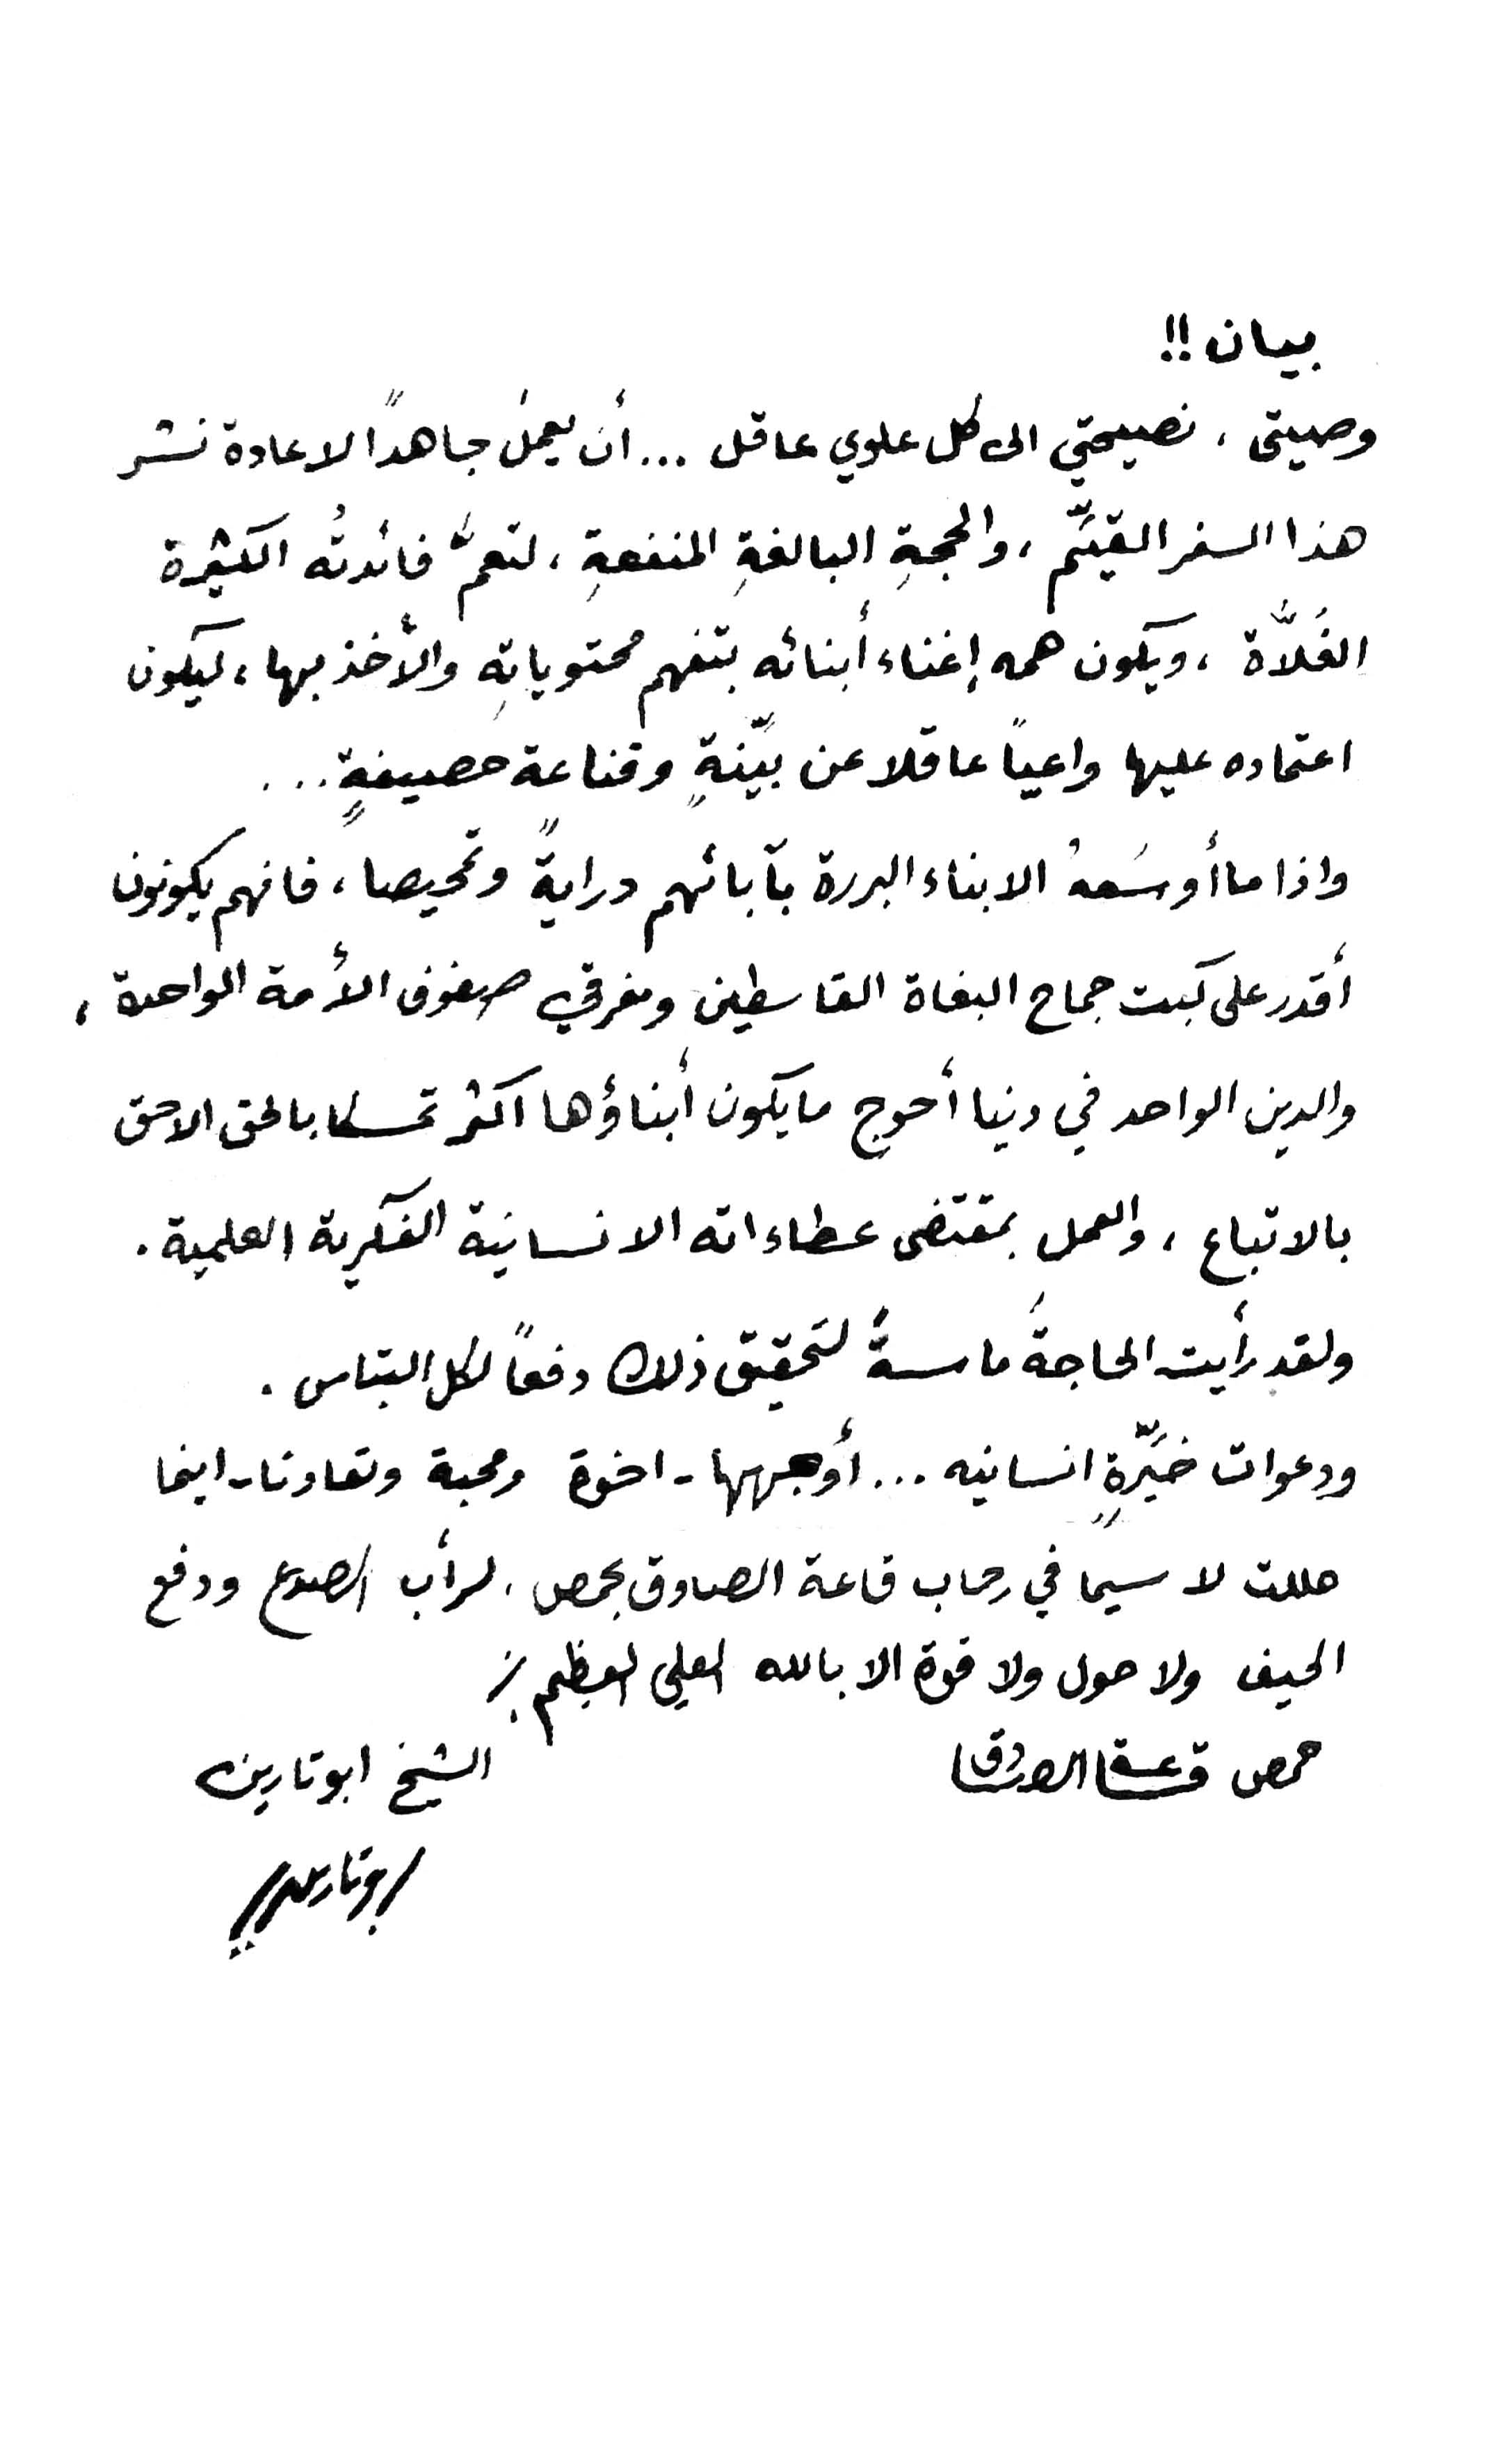 بيان !!
وصيتي ، نصيحتي الى كل علوي عاقل ... أن يعمل جاهداً لاعادة نشر
هذا السفر القيَّم ، والحجةِ البالغةِ المنفعةِ ، لتعمَّ فائدتُه الكثيرة
الغُلاَّة ، ويكون همه إغناء أبنائه بتفهم محتوياتِهِ والأخذ بها ، ليكون
اعتماده عليها واعياً عاقلا عن بيّنةٍ وقناعة حصيفةٍ ...
واذا ما الابناء البررة بآبائهم درايةً وتمحيصا ، فانهم يكونون
أقدر على كبت جماح البغاة القاسطين ومفرقي صفوف الأمة الواحدة ،
والدين الواحد في دنيا أحوج ما يكون أبناؤها اكثر تمسكا بالحق الاحق
بالاتباع ، والعمل بمقتضى عطاءاته الانسانية الفكرية العلمية .
ولقد رأيت الحاجةَ ماسةً لتحقيق ذلك دفعاً لكل التباس .
ودعوات خيَّرةٍ انسانيه ... أوجهها - اخوة ومحبة وتعاونا - اينما
حللت لا سيما في رحاب قاعة الصادق بحمص ، لرأب الصدع ودفع
الحيف ولا حول ولا قوة الا بالله العلي العظيم
حمص قاعة الصادق
الشيخ ابو تارين